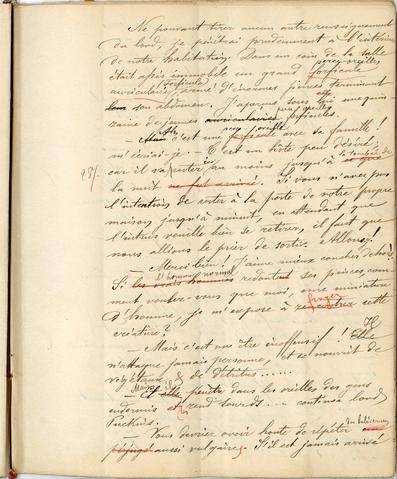 Ne pouvant tirer aucun autre renseignement
du lord, je pénétrai prudemment à l'intérieur
de notre habitation. Dans un coin de la salle
perce-oreilles
était assis immobile un grand forficule
forficule
auriculaire, armé d'énormes pinces terminant
son abdomen. J'aperçus sous elle une quin-
zaine de jeunes auriculaires forficules.
perce-oreille
– Mais c'est une forficule avec sa famille !
m'écriai-je. – C'est un hôte peu désiré,
car il va rester ici au moins jusqu'à
la tombée de
281
la nuit ne fut arrivé. Si vous n'avez pas
l'intention de rester à la porte de notre propre
maison jusqu'à minuit, en attendant que
l'intrus veuille bien se retirer, il faut que
nous allions le prier de sortir. Allons-y !
– Merci bien ! J'aime mieux coucher dehors.
l'homme normal
Si les vrais hommes redoutent ses pinces, com-
ment voulez-vous que moi, une miniature
d'homme, je m'expose à rencontrer cette
créature ?
– Mais c'est un être inoffensif ! Elle
Il
n'attaque jamais personne, et se nourrit de
végétaux & de détritus....
Mais il
– elle pénètre dans les oreilles des gens
endormis et les rend sourds.... continua lord
Puckins.
– Vous devriez avoir honte de répéter
préjugé aussi vulgaire. S'il est jamais arrivé